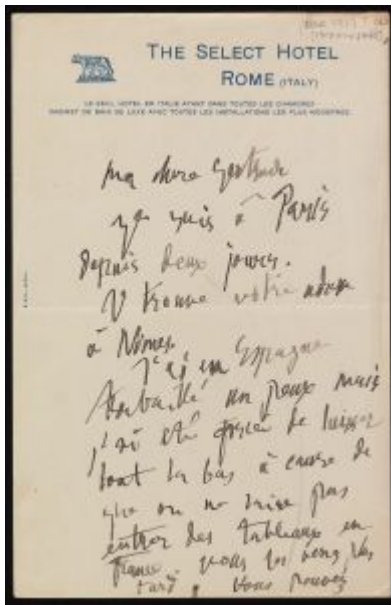 THE SELECT HOTEL
ROME (ITALY)
LE SEUL HOTEL EN ITALIE AYANT DANS TOUTES LES CHAMBRES
CABINET DE BAIN DE LUXE AVEC TOUTES LES INSTALLATIONS LES PLUS MODERNES.
ma chere Gertrude
je suis à Paris
depuis deux jours.
trouve votre
à Nimes.
J'ai en Espagne
travaillé un peux mais
j'ai eté de laisser
tout la bas à cause de
que on ne laise pas
entrer des tableaux en
France vous les
tard. Vous pouvez